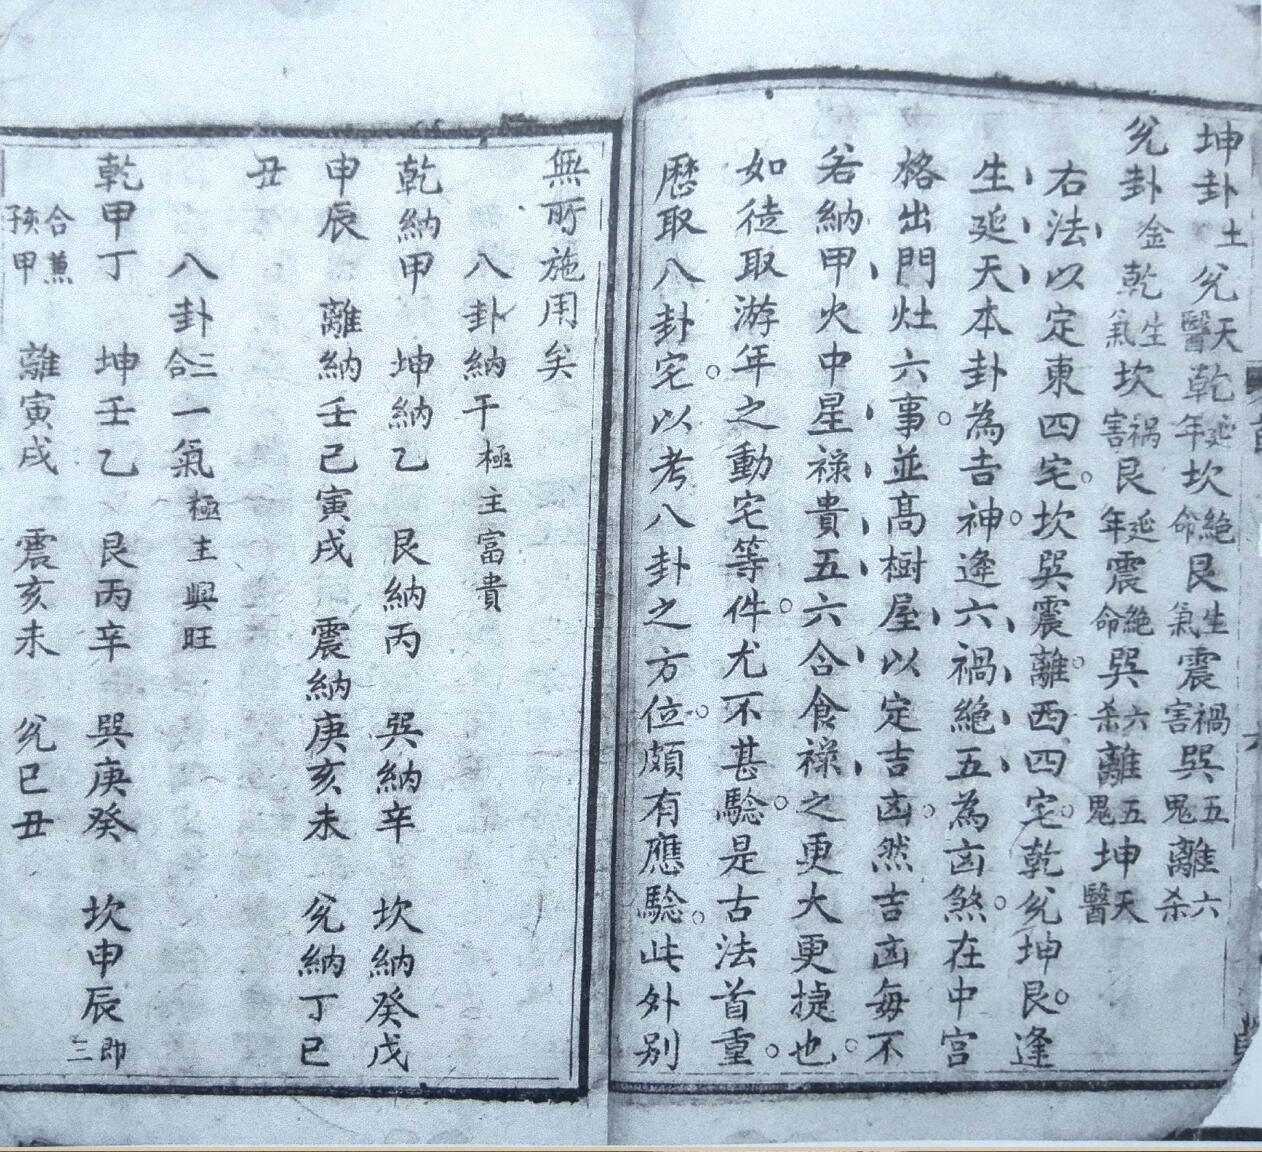 坤卦土兊天醫乾延年坎絶命艮生氣震禍害巽五鬼離六杀
兊卦金乾生氣坎禍害艮延年震絶命巽六杀離五鬼坤天醫
右法以定東四宅坎巽震離西四宅乾兊坤艮逢
生延天本卦為吉神逢六禍絶五為凶煞在中宮
格出門灶六事並高樹屋以定吉凶然吉凶每不
若納甲火中星祿貴五六合食祿之更大更捷也
如徒取游年之動宅等件尤不甚騐是古法首重
歷取八卦宅以考八卦之方位頗有應騐此外別
無所施用矣
八卦納干極主富貴
乾納甲 坤納乙 艮納丙 巽納辛 坎納癸戊
申辰 離納壬己寅戌 震納庚亥未 兊納丁巳
丑
八卦合三一氣極主興旺
乾甲丁 坤壬乙 艮丙辛 巽庚癸 坎申辰即三
合蕙 甲 離寅戌 震亥未 兊巳丑